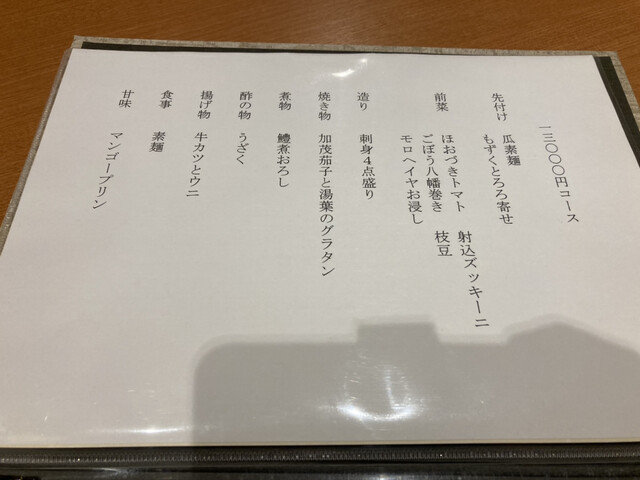 一三〇〇〇円コース
先付け 瓜素麺
もずくとろろ寄せ
前菜 ほおづきトマト 射込ズッキーニ
ごぼう八幡巻き 枝豆
モロヘイヤお浸し
造り 刺身4点盛り
焼き物 加茂茄子と湯葉のグラタン
煮物 鱧煮おろし
酢の物 うざく
揚げ物 牛カツとウニ
食事 素麺
甘味 マンゴープリン